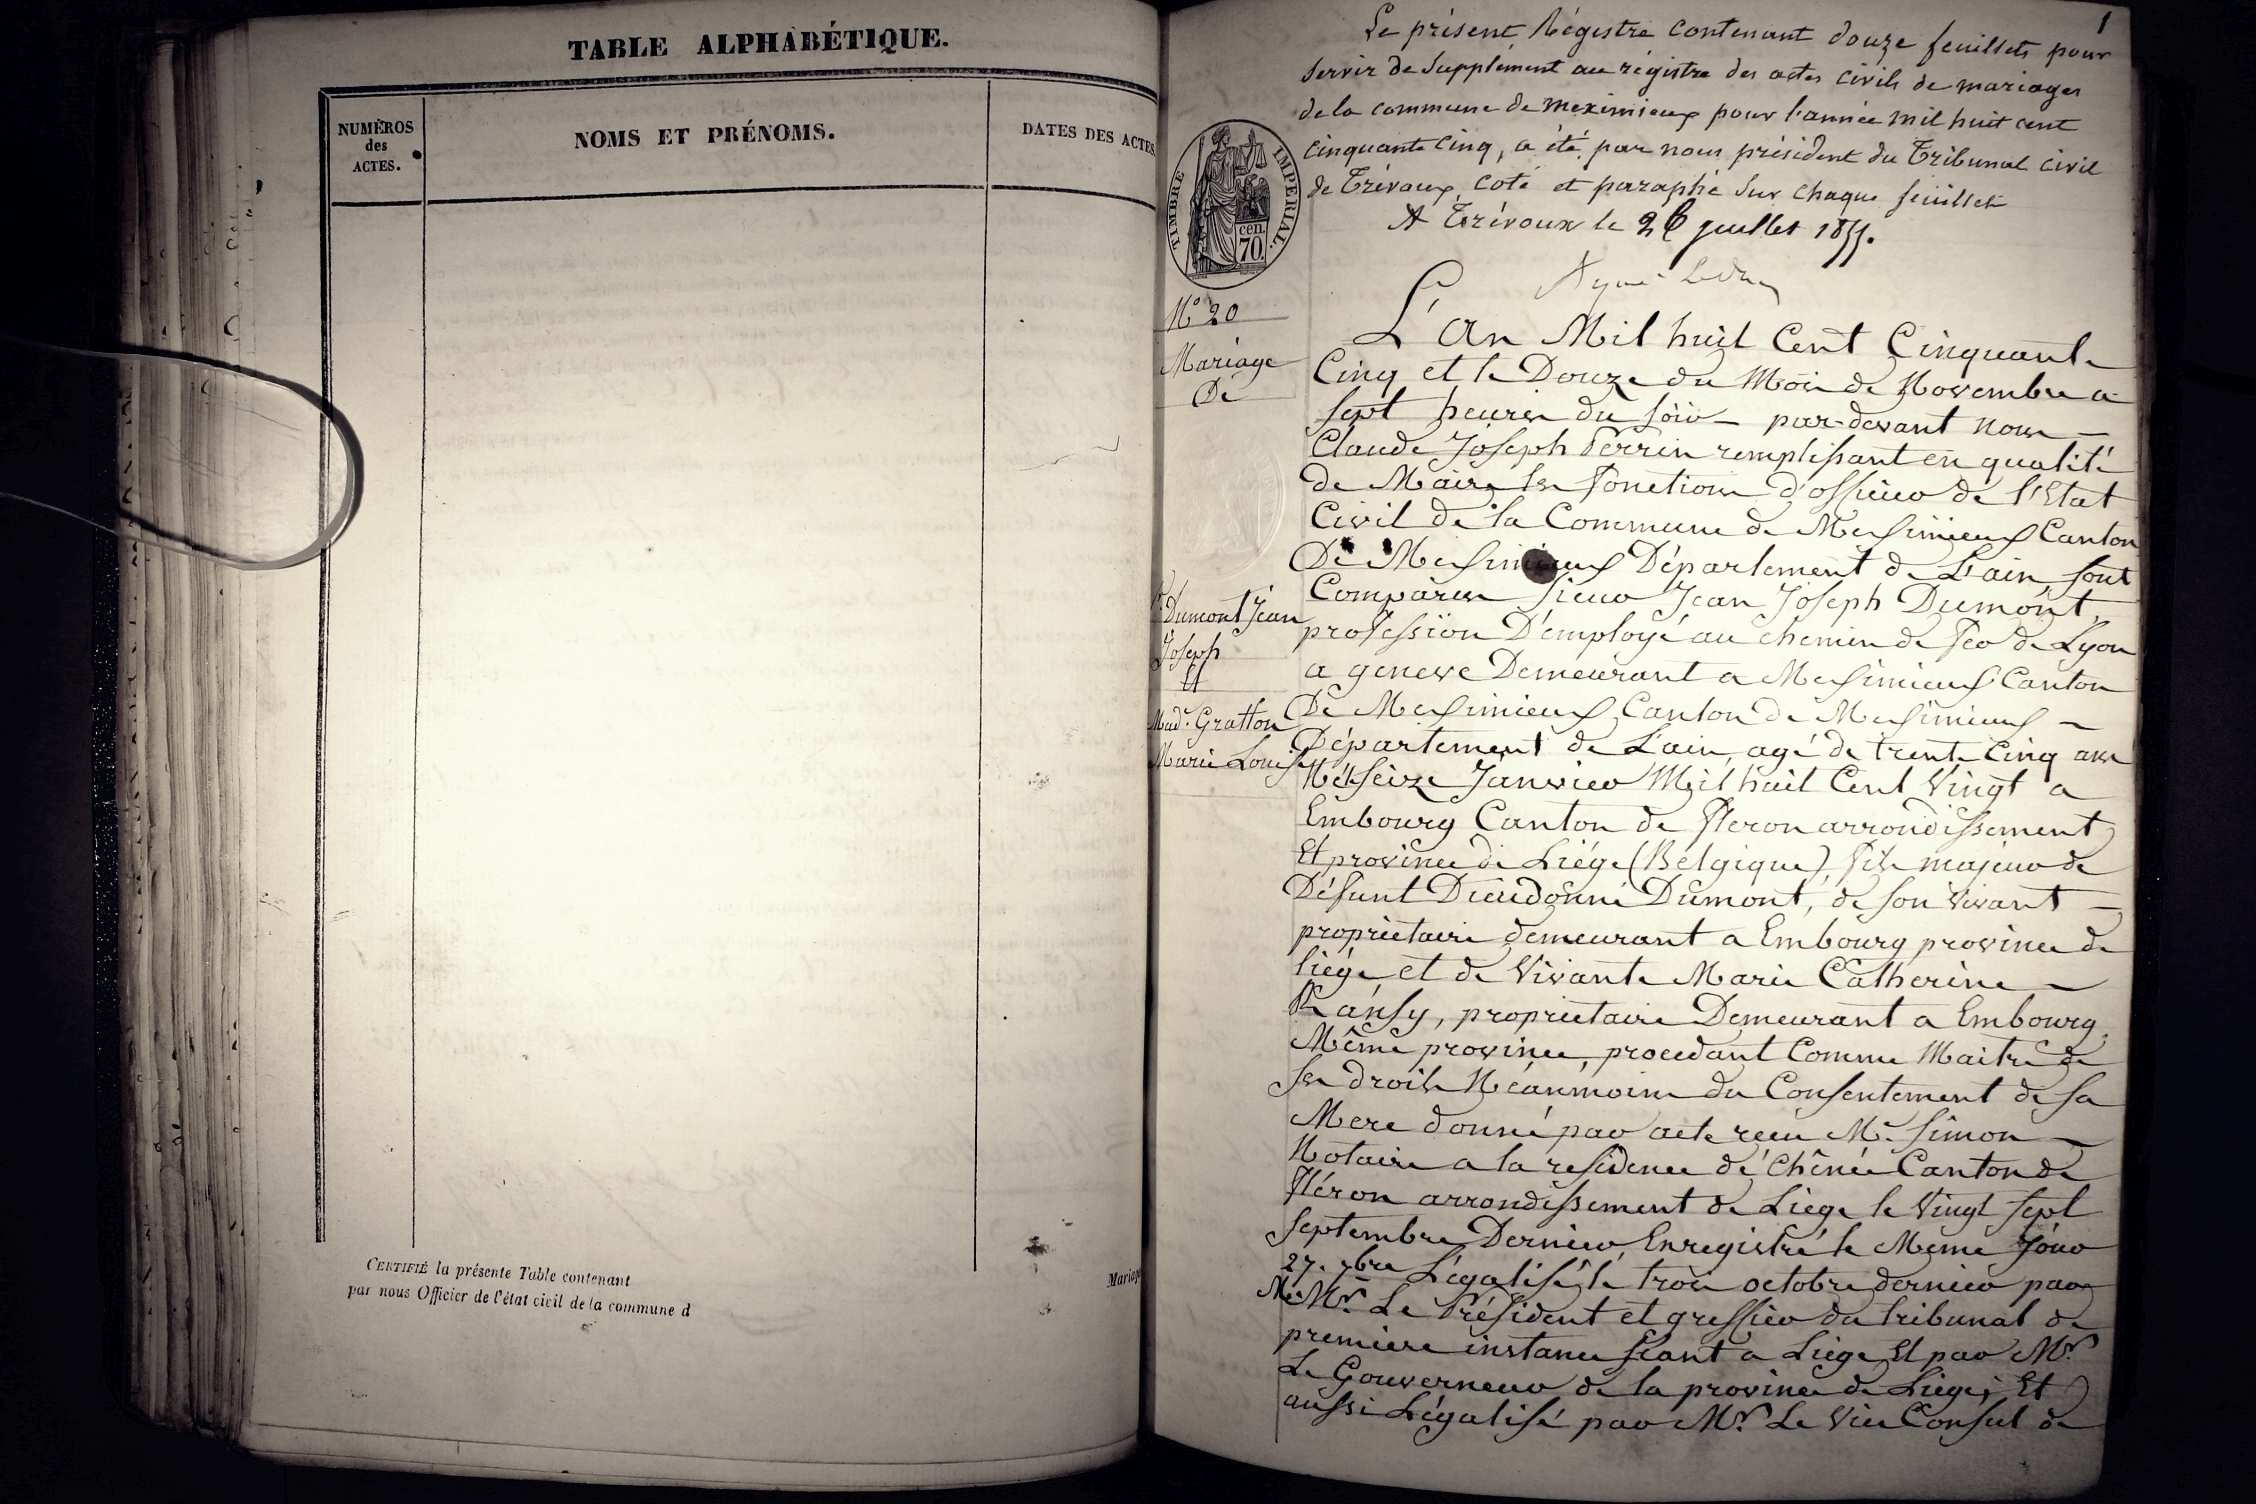 TABLE ALPHABÉTIQUE.
NUMÉROS
des
ACTES.
NOMS ET PRÉNOMS.
DATES DES ACTES
CERTIFIÉ la présente Table contenant
par nous Officier de l'état civil de la commune d
Mariage
1
Le présent Régistre contenant douze feuillets pour
servir de Supplément au régistre des actes civils de mariages
de la commune de meximieux pour l'année mil huit cent
cinquante cinq, a été, par nous président du Tribunal civil
de Trévoux, coté et paraphé sur chaque feuillet
A Trévoux le 26 juillet 1855.
TIMBRE IMPERIAL.
70. cen.
N° 20
Mariage
De
Dumont Jean
Joseph
Mad.e Gratton
Marie Louise
L'an Mil huit Cent Cinquante
Cinq et le Douze du Mois de Novembre a
sept heures du soir – par-devant nous –
Claude Joseph Perrin remplissant en qualité
de Maire les fonctions d'officier de l'Etat
Civil de la Commune de Meximieux Canton
De Meximieux Département de L'ain, sont
Comparus Sieur Jean Joseph Dumont,
profession D'employé au chemin de fer de Lyon
a geneve Demeurant a Meximieux Canton
De Meximieux, Canton de Meximieux –
Département de L'ain, agé de trente Cinq ans
Né le seize Janvier Mil huit Cent Vingt a
Embourg Canton de Fleron arrondissement
Et province de Liége (Belgique), fils majeur de
Défunt Dieudonné Dumont, de son vivant –
propriétaire demeurant a Embourg province de
liége et de Vivante Marie Catherine –
Ransy, propriétaire Demeurant a Embourg,
Même province, procedant Comme Maitre de
ses droits Néanmoins du Consentement de sa
Mere donné par acte reçu Me. Simon –
Notaire a la residence de Chênée Canton de
Fléron arrondissement de Liége le Vingt sept
septembre Dernier, Enregistré le Même Jour
27. 7bre Légalisé le trois octobre dernier par
Mr. Le Président et greffier du tribunal de
premiere instance séant a Liége Et par Mr.
Le Gouverneur de la province de Liége; Et
aussi Légalisé par Mr. Le Vice Consul de